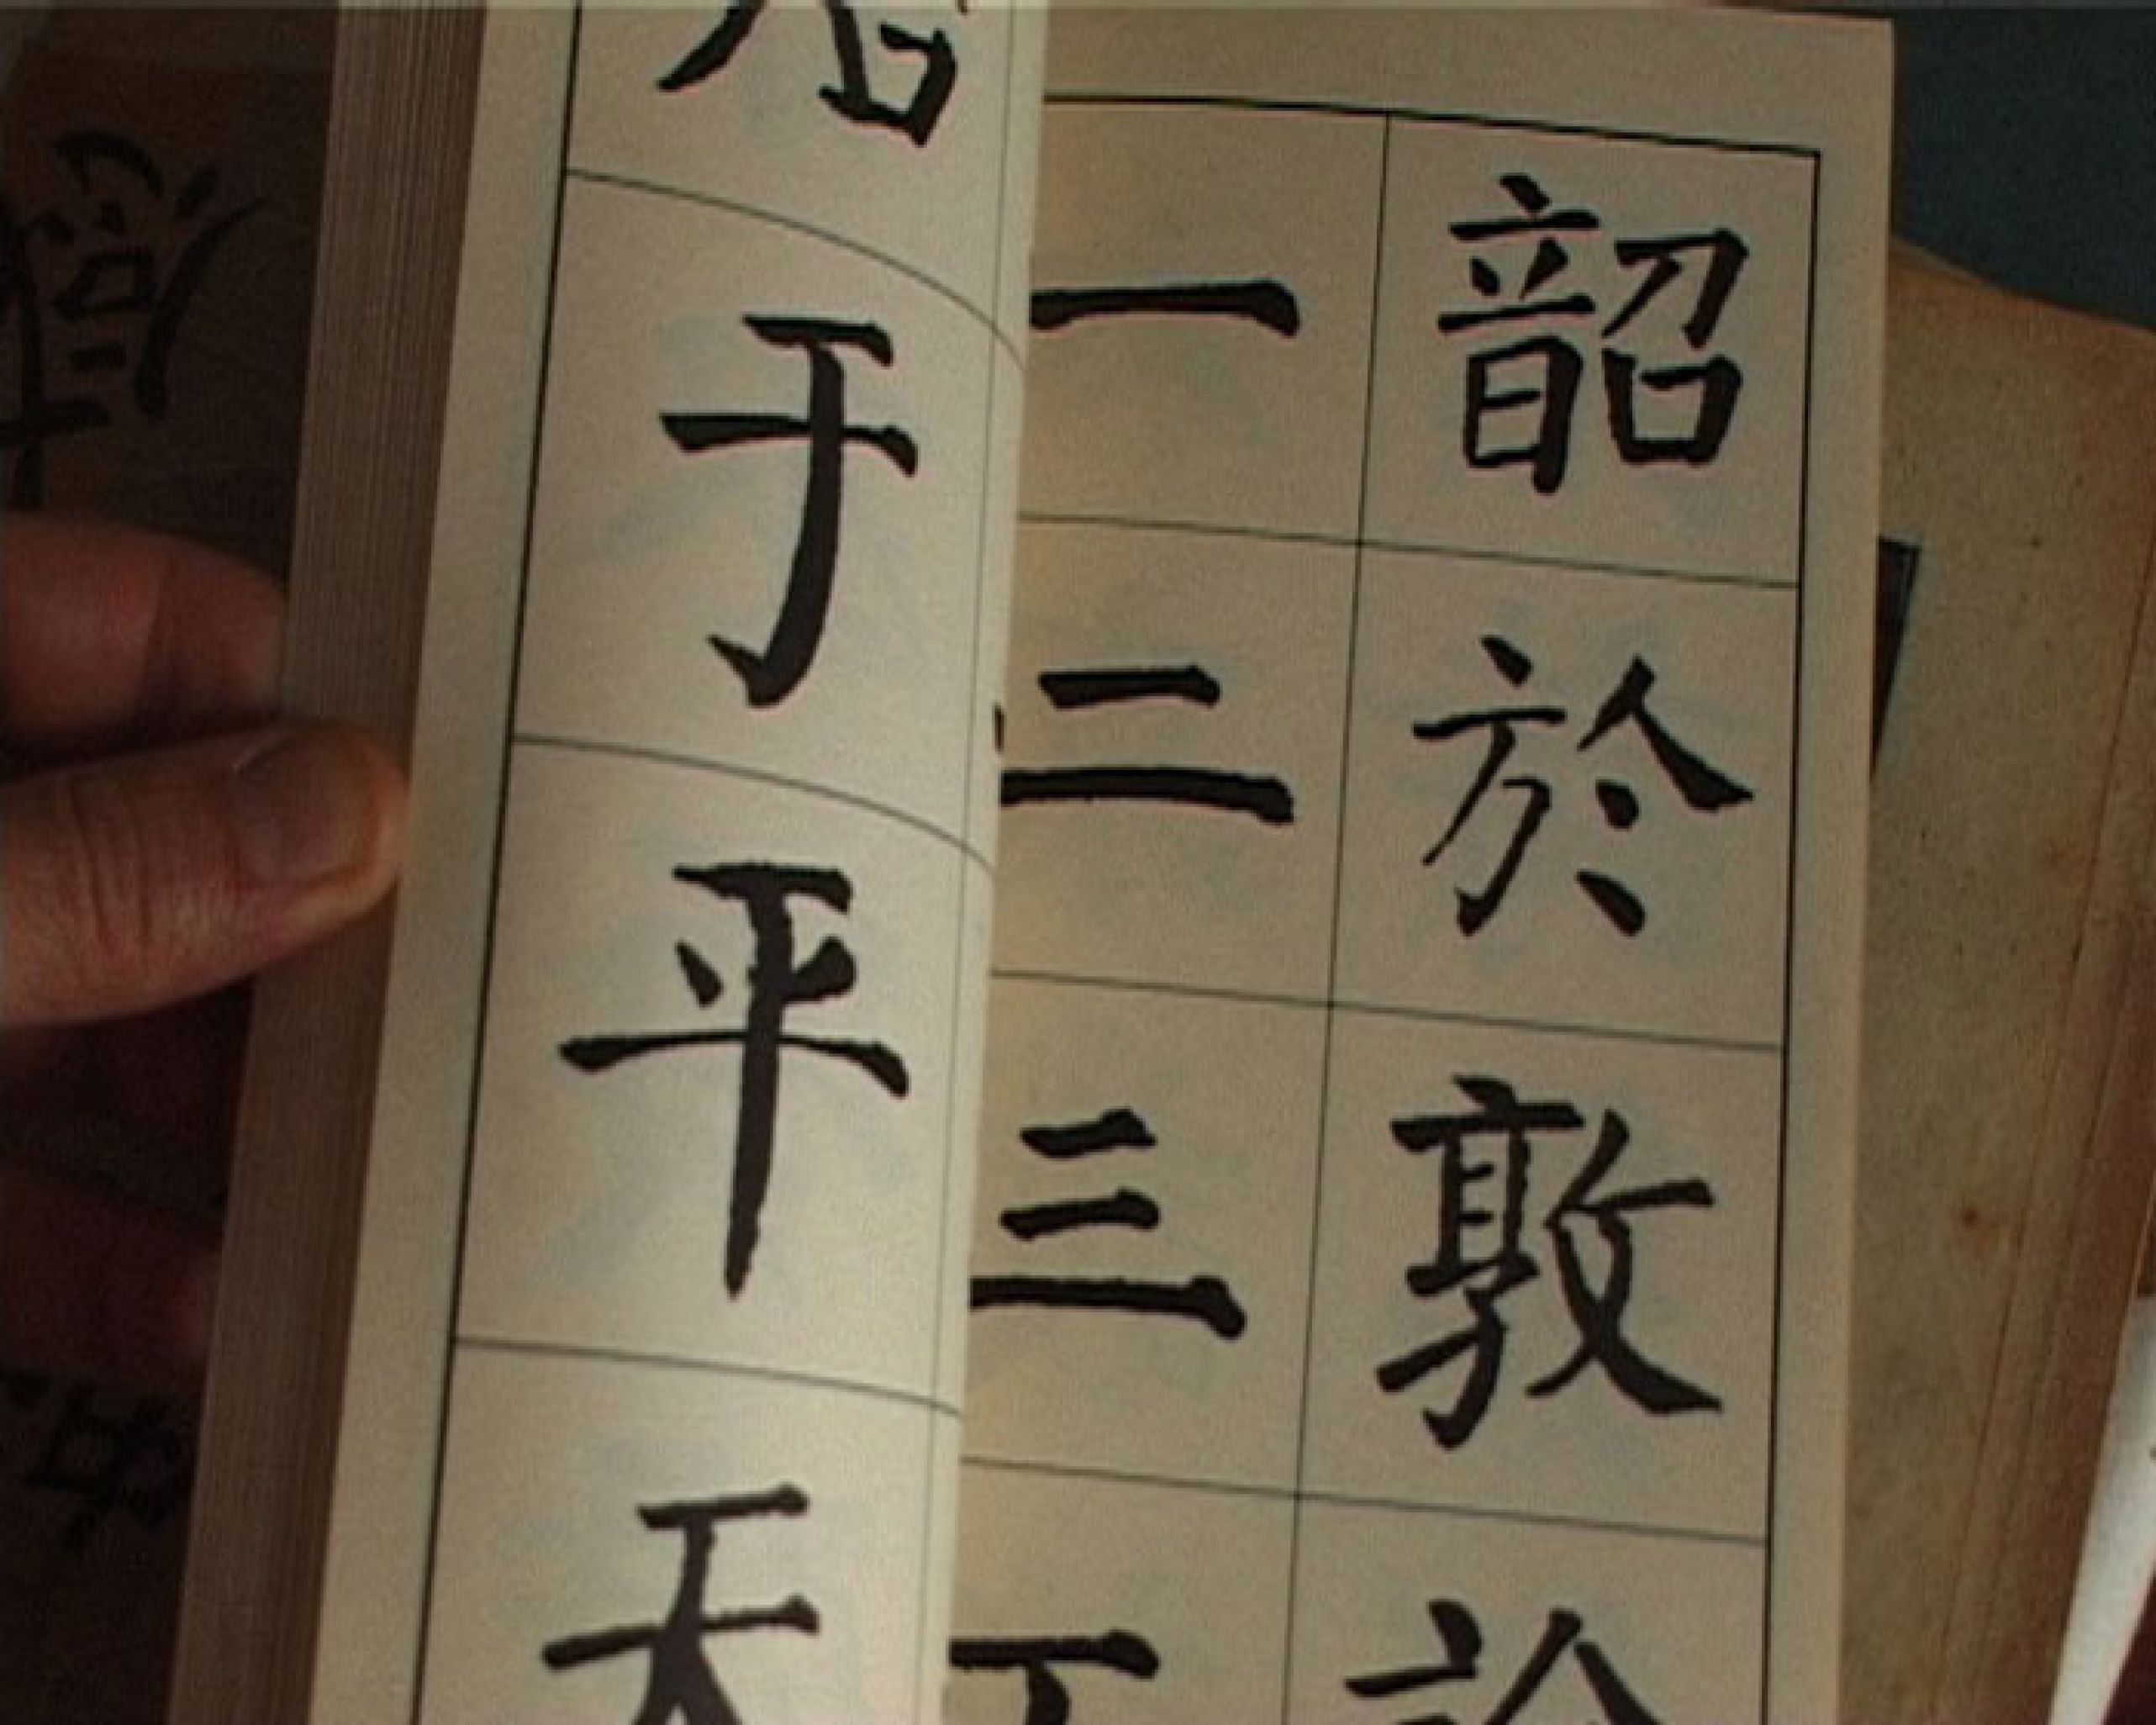 韶於敦
一二三
于平天